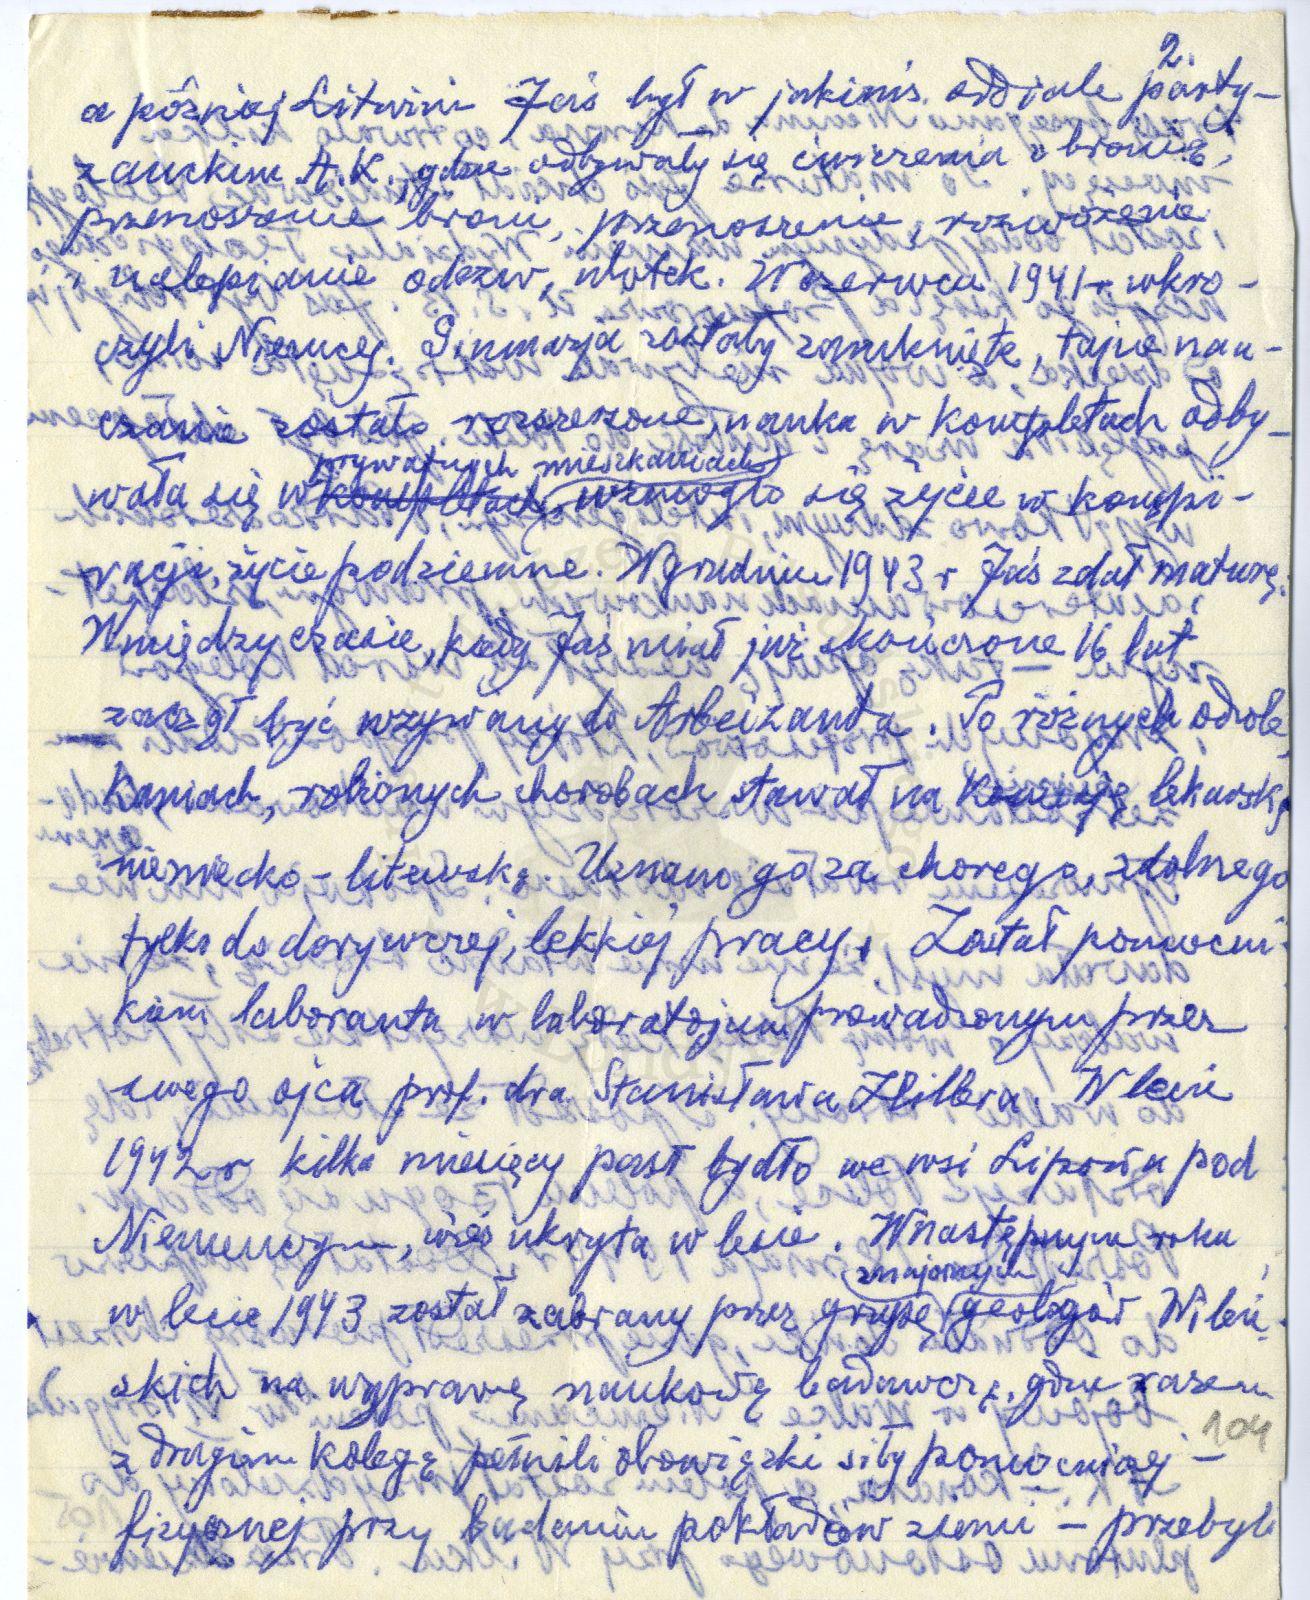 2.
a później Litwini Jaś był w jakimś oddziale party-
zanckim A.K., gdzie odbywały się ćwiczenia z bronią,
przenoszenie broni, przenoszenie, rozwożenie
i nalepianie odezw, ulotek. W czerwcu 1941 r. wkro-
czyli Niemcy. Gimnazja zostały zamknięte, tajne nau-
czanie zostało rozszerzone, nauka w kompletach odby-
prywatnych mieszkaniach
wała się w kompletach, wzmogło się życie w konspi-
racji, życie podziemne. W grudniu 1943 r Jaś zdał maturę.
W międzyczasie, kiedy Jaś miał już skończone 16 lat
zaczął być wzywany do Arbeizamta. Po różnych odrolę
kaniach, robionych chorobach stawał na Komisję lekarską
niemiecko-litewską. Uznano go za chorego, zdolnego
tylko do dorywczej, lekkiej pracy. Został pomocni-
kiem laboranta w laboratorjum prowadzonym przez
swego ojca prof. dra Stanisława Hillera. W lecie
1942 r kilka miesięcy pasł bydło we wsi pod
Niemenczynem, wieś ukryta w lesie. W następnym roku
znajomych
w lecie 1943 został zabrany przez grupę geologów Wileń-
skich na wyprawę naukową badawczą, gdzie razem
z drugim kolegą pełnili obowiązki siły pomocniczej -
104
fizycznej przy badaniu pokładów ziemi - przebyli